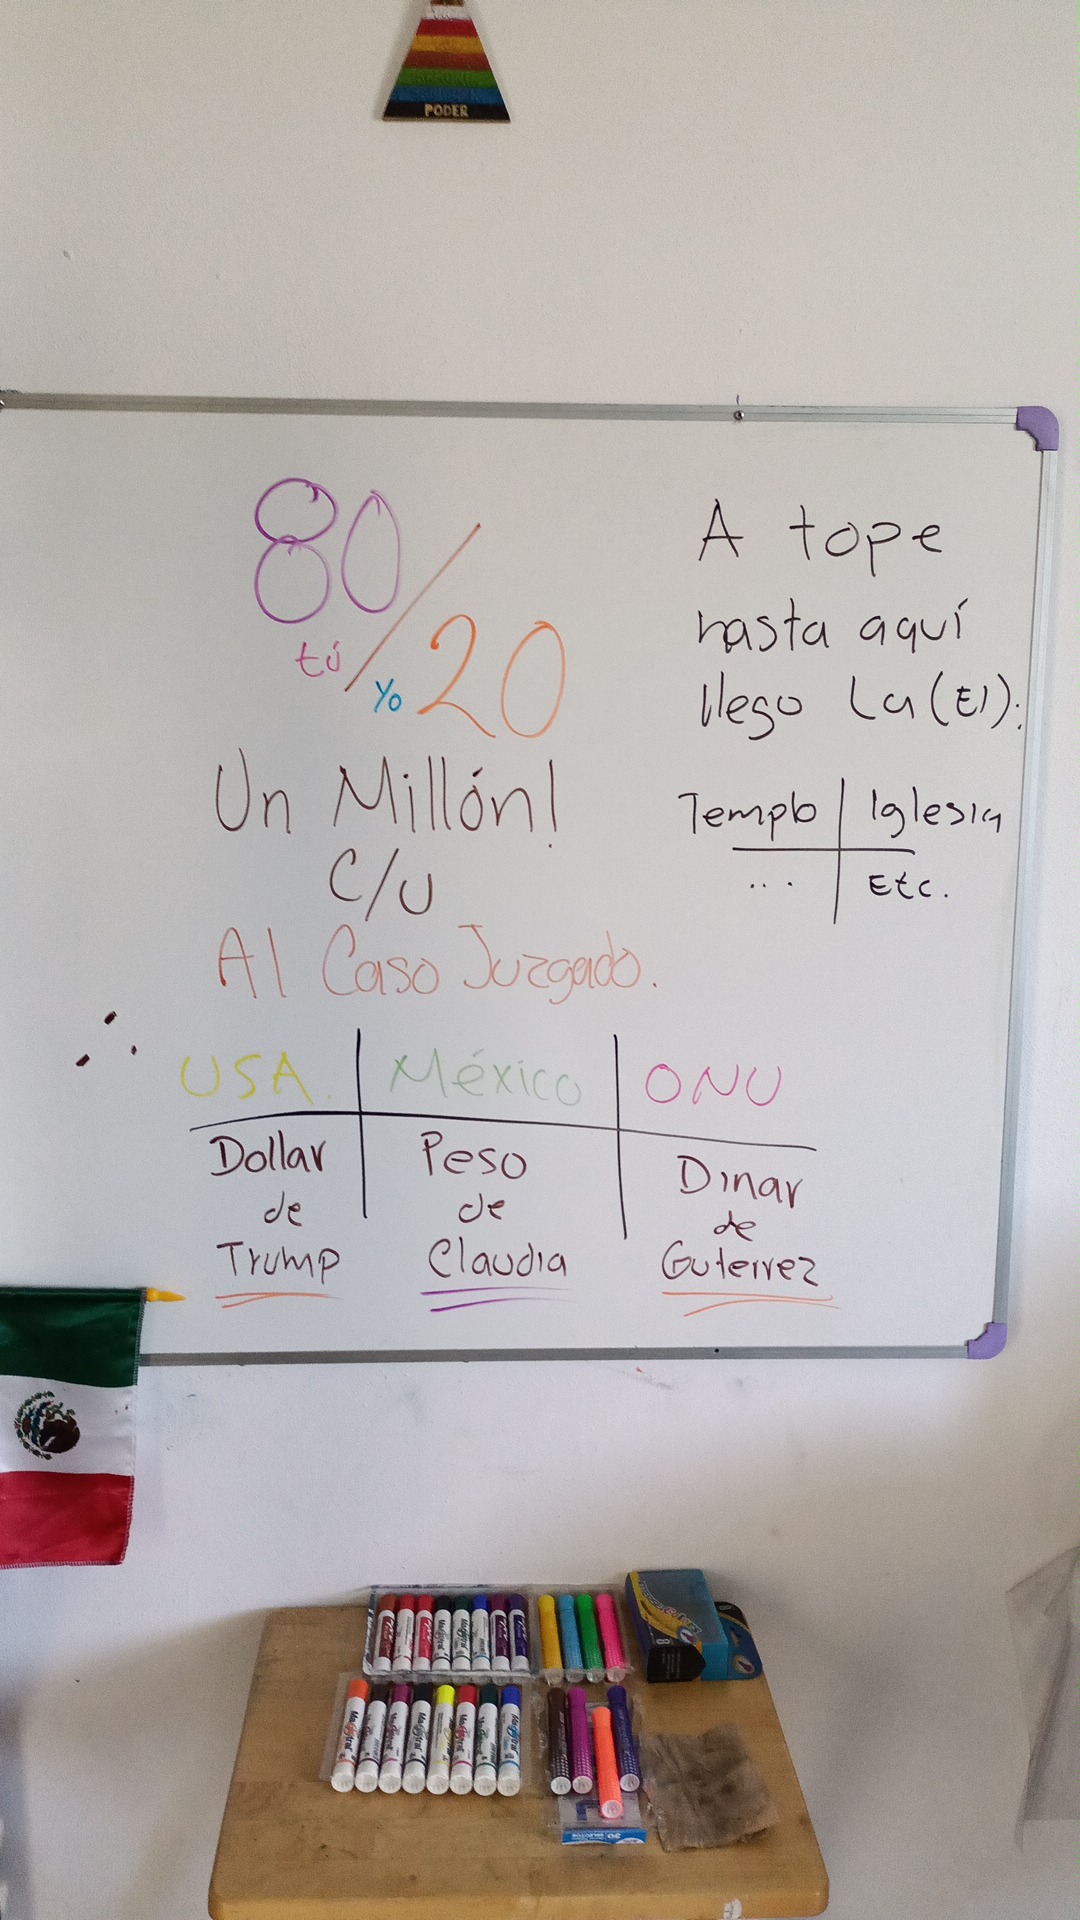 PODER
80/20
tú
Yo
Un Millón!
C/U
Al Caso Juzgado.
A tope
hasta aquí
llego La (El):
Templo | Iglesia
... | Etc.
USA. | México | ONU
Dollar
de
Trump
Peso
de
Claudia
Dinar
de
Guterrez